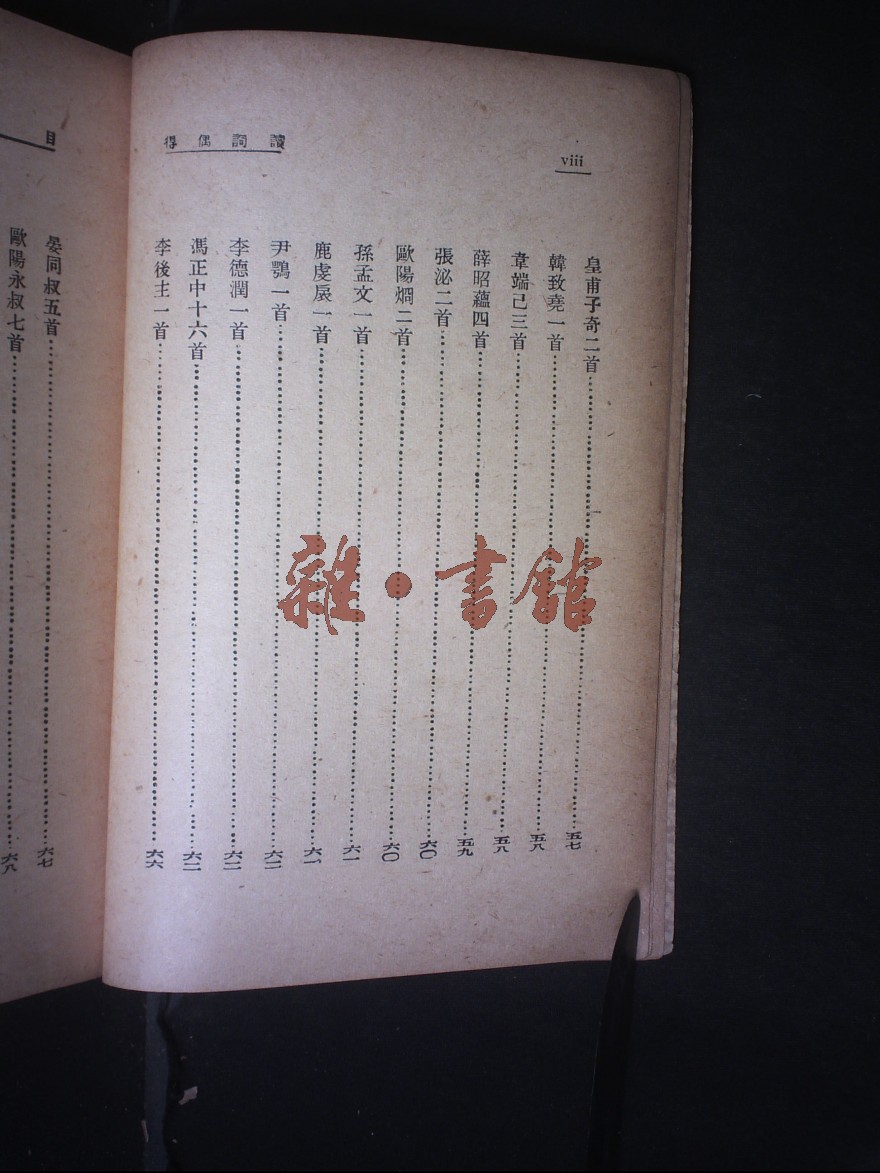 讀詞偶得
viii
皇甫子奇二首……五七
韓致堯一首……五八
韋端己三首……五八
薛昭蘊四首……五九
張泌二首……六〇
歐陽烱二首……六〇
孫孟文一首……六一
鹿虔扆一首……六一
尹鶚一首……六二
李德潤一首……六二
馮正中十六首……六二
李後主一首……六六
目
晏同叔五首……六七
歐陽永叔七首……六八
雜·書館